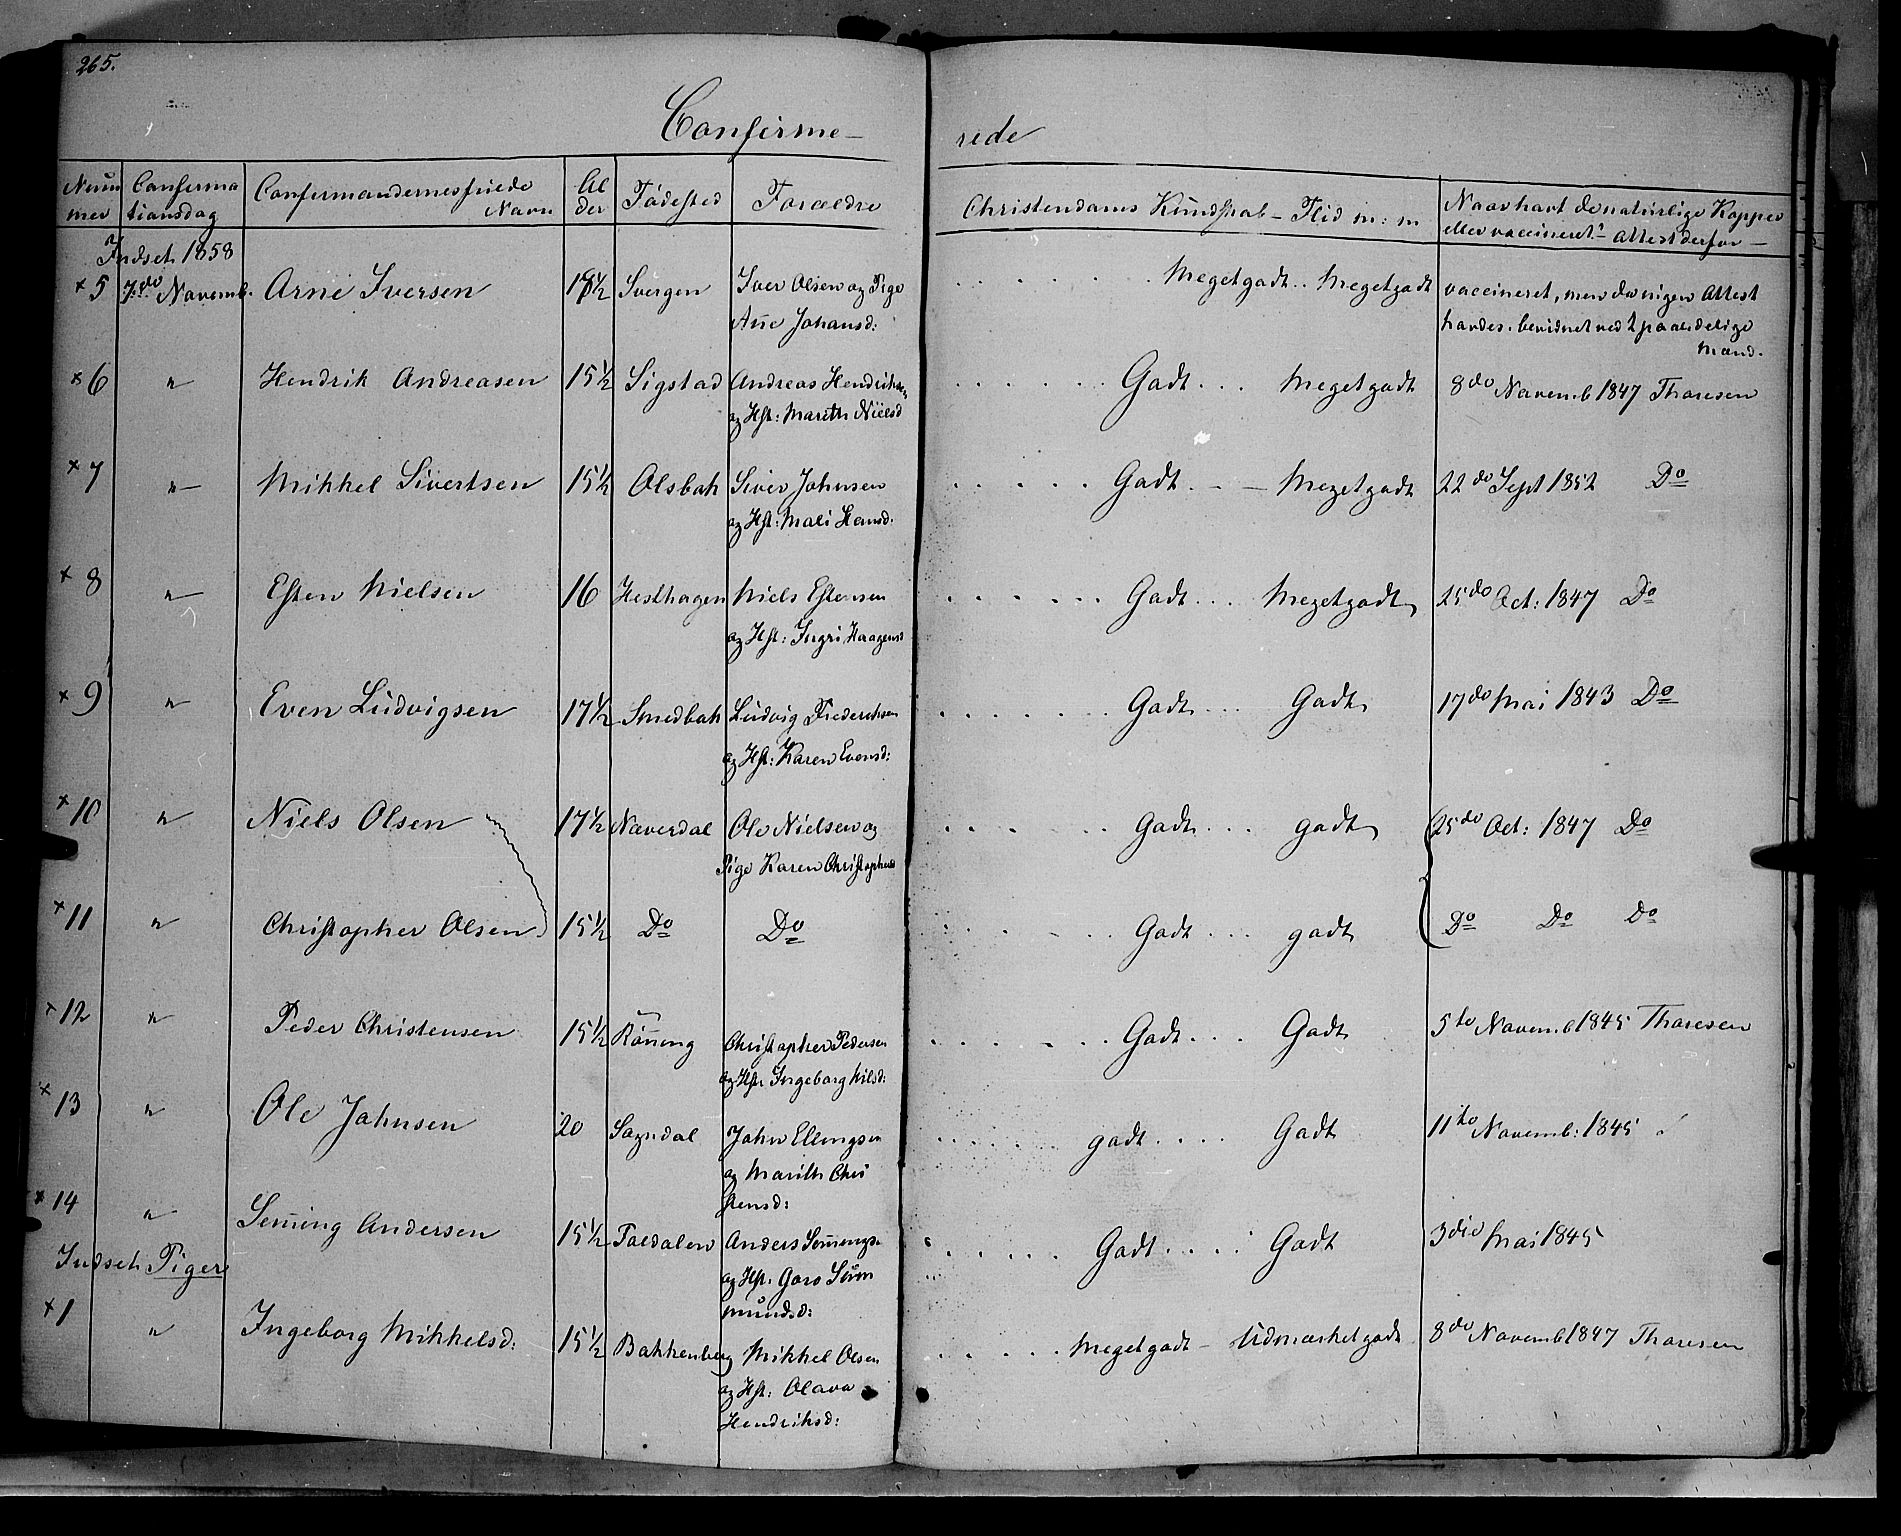 265.
Confirme- rede
Num mer | Confirma tionsdag | Confirmandernes fulde Navn | Al der | Fødested | Forældre | Christendoms Kundskab – Flid m: m | Naar havt de naturlige Kopper eller vaccineret? – Attest derfor –
Indset 1858
× 5 7de Novemb. Arne Iversen Svergen Iver Olsen og Pige . . . . . . Megetgodt . . Megetgodt vaccineret, men ingen Attest
Ane Johansd: havdes. bevidnet ved 2 paalidelige
Mænd.
× 6 " Hendrik Andreasen 15½ Sigstad Andreas Hendriksen . . . . . . Godt . . . Megetgodt 8de Novemb 1847 Thoresen
og Hst: Marith Nielsd
× 7 " Mikkel Sivertsen 15½ Olsbak Siver Johnsen . . . . . Godt . - - Megetgodt 22de Sept 1852 Do
og Hst: Mali Hansd.
× 8 " Esten Nielsen 16 Hesthagen Niels Estensen . . . . . . Godt . . . Megetgodt 25de Oct: 1847 Do
og Hst: Ingri Haagensd
× 9 " Even Ludvigsen 17½ Smedbak Ludvig Frederiksen . . . . . . Godt . . . Godt 17de Mai 1843 Do
og Hst: Karen Evensd:
× 10 " Niels Olsen 17½ Næverdal Ole Nielsen og . . . . . . Godt . . . godt 25de Oct: 1847 Do
Pige Karen Christophersd
× 11 " Christopher Olsen 15½ Do Do . . . . . . Godt . . . godt Do Do Do
× 12 " Peder Christensen 15½ Rønning Christopher Pedersen . . . . . . Godt . . . Godt 5te Novemb 1845 Thoresen
og Hst Ingeborg Nilsd:
× 13 " Ole Johnsen 20 Sagndal John Ellingsen . . . . . godt . . . . Godt 11te Novemb: 1845
og Marith Chri
stensd:
× 14 " Seming Andersen 15½ Taedalen Anders Semings. . . . . . . Godt . . . . Godt 3die Mai 1845
og Hst. Goro Sim
mundsd:
Indset Piger
× 1 " Ingeborg Mikkelsd: 15½ Bakkenberg Mikkel Olsen . . . . . Megetgodt - Udmærketgodt 8de Novemb 1847 Thoresen
og Hst: Olava
Hendriksd: